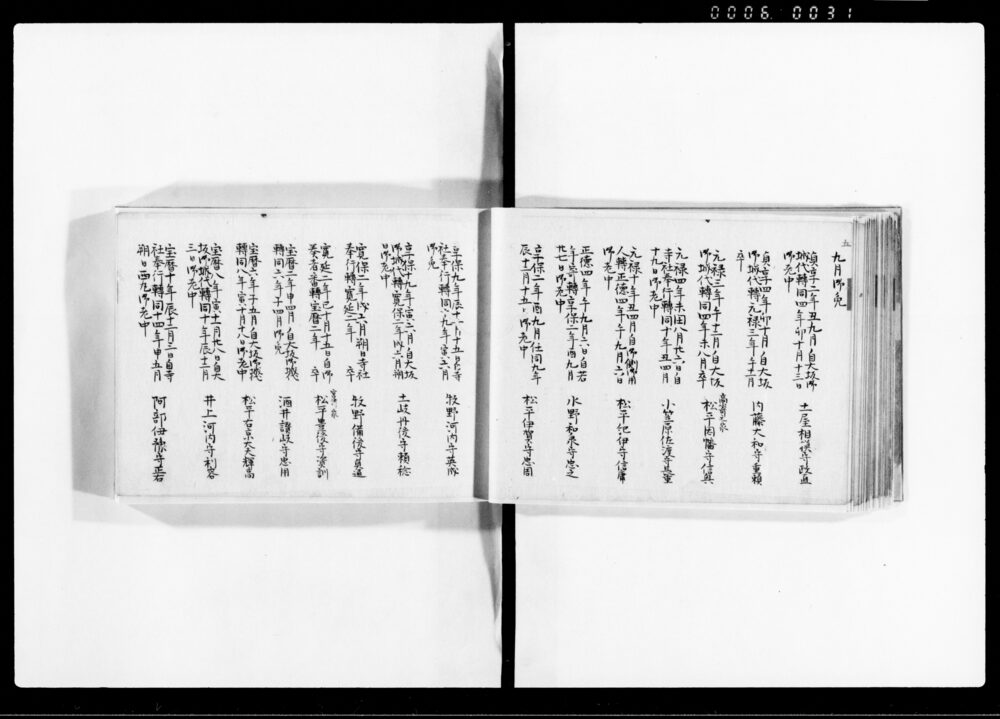 0006 0031
五
九月御免
貞享二年丑九月自大坂御
城代轉同四年卯十月十三日
御老中
土屋相模守政直
貞享四年卯十月自大坂
御城代轉元禄三年午十一月
卒
内藤大和守重頼
元禄三年午十二月自大坂
御城代轉同四年未八月卒
松平因幡守信興
元禄四年未閏八月廿六日自
寺社奉行轉同十年丑四月
十九日御老中
小笠原佐渡守長重
元禄十年丑四月自御側用
人轉正徳四年午九月六日
御老中
松平紀伊守信庸
正徳四年午九月六日自若
年寄轉享保二年酉九月
廿七日御老中
水野和泉守忠之
享保二年酉九月任同九年
辰十二月十五日御老中
松平伊賀守忠周
享保九年辰十二月十五日自寺
社奉行轉同十九年寅六月
御免
牧野河内守英成
享保十九年寅六月自大坂
御城代轉寛保二年戌六月朔
日御老中
土岐丹後守頼稔
寛保二年戌六月朔日寺社
奉行轉寛延二年 卒
牧野備後守貞通
寛延二年巳十月十五日自御
奏者番轉宝暦二年 卒
松平豊後守資訓
宝暦二年申四月自大坂御城
轉同六年子四月御免
酒井讃岐守忠用
宝暦六年子五月自大坂御城
轉同八年寅十月十八日御老中
松平右京大夫輝高
宝暦八年寅十一月廿八日自大
坂御城代轉同十年辰十二月
三日御老中
井上河内守利容
宝暦十年辰十二月三日自寺
社奉行轉同十四年申五月
朔日西丸御老中
阿部伊豫守正右